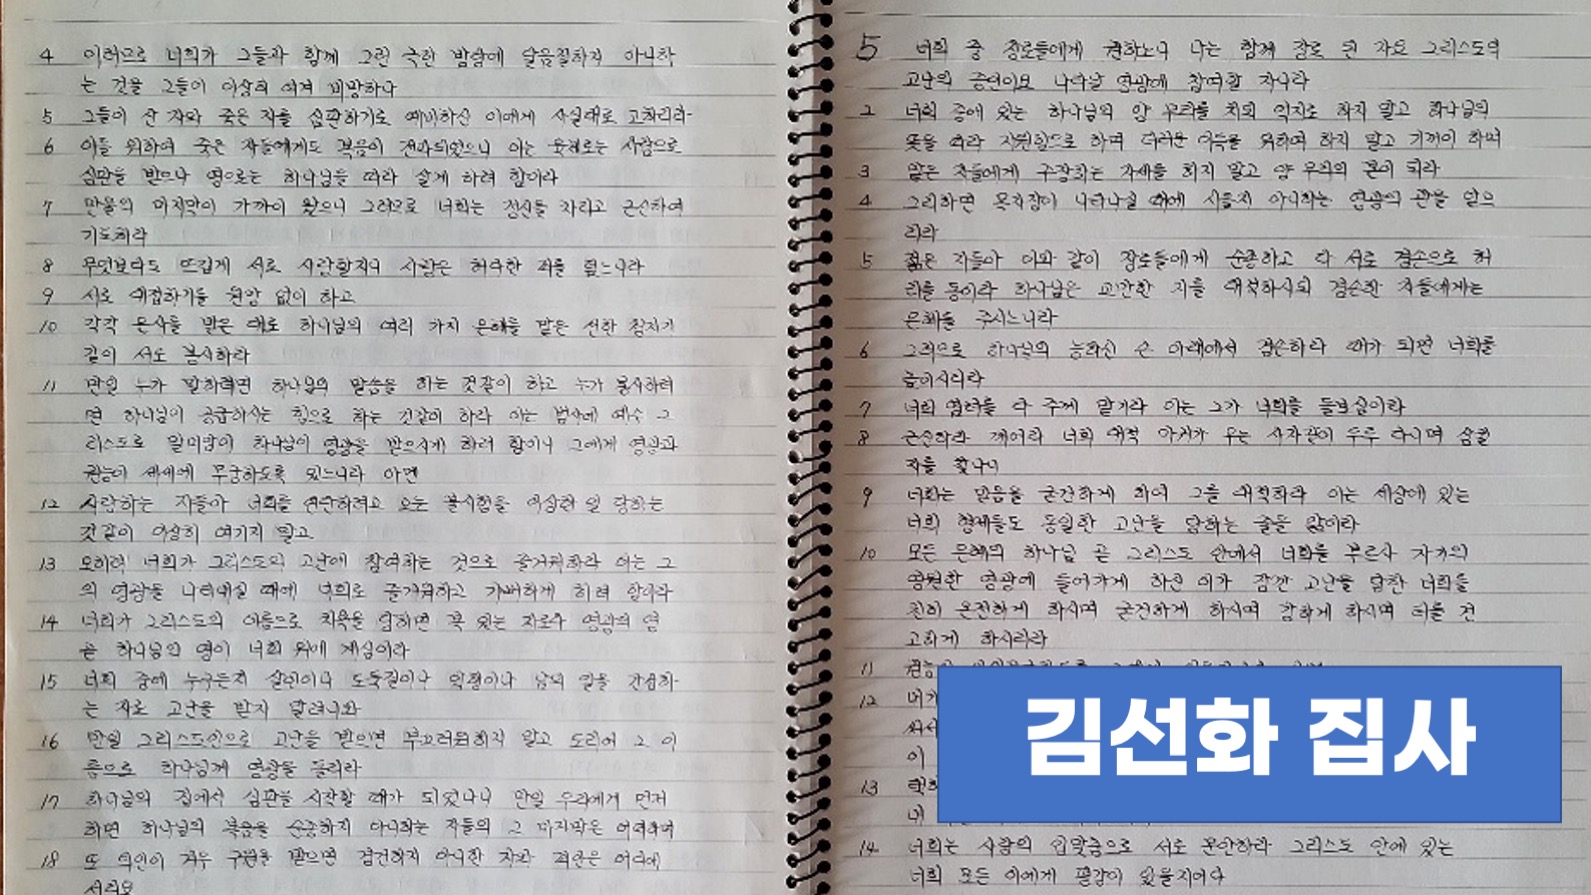 4 이러므로 너희가 그들과 함께 그런 극한 방탕에 달음질하지 아니하
는 것을 그들이 이상히 여겨 비방하나
5 그들이 산 자와 죽은 자를 심판하기로 예비하신 이에게 사실대로 고하리라
6 이를 위하여 죽은 자들에게도 복음이 전파되었으니 이는 육체로는 사람으로
심판을 받으나 영으로는 하나님을 따라 살게 하려 함이라
7 만물의 마지막이 가까이 왔으니 그러므로 너희는 정신을 차리고 근신하여
기도하라
8 무엇보다도 뜨겁게 서로 사랑할지니 사랑은 허다한 죄를 덮느니라
9 서로 대접하기를 원망 없이 하고
10 각각 은사를 받은 대로 하나님의 여러 가지 은혜를 맡은 선한 청지기
같이 서로 봉사하라
11 만일 누가 말하려면 하나님의 말씀을 하는 것같이 하고 누가 봉사하려
면 하나님이 공급하시는 힘으로 하는 것같이 하라 이는 범사에 예수 그
리스도로 말미암아 하나님이 영광을 받으시게 하려 함이니 그에게 영광과
권능이 세세에 무궁하도록 있느니라 아멘
12 사랑하는 자들아 너희를 연단하려고 오는 불시험을 이상한 일 당하는
것같이 이상히 여기지 말고
13 오히려 너희가 그리스도의 고난에 참여하는 것으로 즐거워하라 이는 그
의 영광을 나타내실 때에 너희로 즐거워하고 기뻐하게 하려 함이라
14 너희가 그리스도의 이름으로 치욕을 당하면 복 있는 자로다 영광의 영
곧 하나님의 영이 너희 위에 계심이라
15 너희 중에 누구든지 살인이나 도둑질이나 악행이나 남의 일을 간섭하
는 자로 고난을 받지 말려니와
16 만일 그리스도인으로 고난을 받으면 부끄러워하지 말고 도리어 그 이
름으로 하나님께 영광을 돌리라
17 하나님의 집에서 심판을 시작할 때가 되었나니 만일 우리에게 먼저
하면 하나님의 복음을 순종하지 아니하는 자들의 그 마지막은 어떠하며
18 또 의인이 겨우 구원을 받으면 경건하지 아니한 자와 죄인은 어디에
서리요
5 너희 중 장로들에게 권하노니 나는 함께 장로 된 자요 그리스도의
고난의 증인이요 나타날 영광에 참여할 자니라
2 너희 중에 있는 하나님의 양 무리를 치되 억지로 하지 말고 하나님의
뜻을 따라 자원함으로 하며 더러운 이득을 위하여 하지 말고 기꺼이 하며
3 맡은 자들에게 주장하는 자세를 하지 말고 양 무리의 본이 되라
4 그리하면 목자장이 나타나실 때에 시들지 아니하는 영광의 관을 얻으
리라
5 젊은 자들아 이와 같이 장로들에게 순종하고 다 서로 겸손으로 허
리를 동이라 하나님은 교만한 자를 대적하시되 겸손한 자들에게는
은혜를 주시느니라
6 그러므로 하나님의 능하신 손 아래에서 겸손하라 때가 되면 너희를
높이시리라
7 너희 염려를 다 주께 맡기라 이는 그가 너희를 돌보심이라
8 근신하라 깨어라 너희 대적 마귀가 우는 사자같이 두루 다니며 삼킬
자를 찾나니
9 너희는 믿음을 굳건하게 하여 그를 대적하라 이는 세상에 있는
너희 형제들도 동일한 고난을 당하는 줄을 앎이라
10 모든 은혜의 하나님 곧 그리스도 안에서 너희를 부르사 자기의
영원한 영광에 들어가게 하신 이가 잠깐 고난을 당한 너희를
친히 온전하게 하시며 굳건하게 하시며 강하게 하시며 터를 견
고하게 하시리라
11
12 내가
이
13
내
김선화 집사
14 너희는 사랑의 입맞춤으로 서로 문안하라 그리스도 안에 있는
너희 모든 이에게 평강이 있을지어다